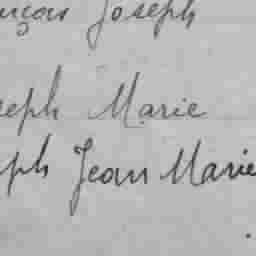 nçois Joseph
seph Marie
eph Jean Marie